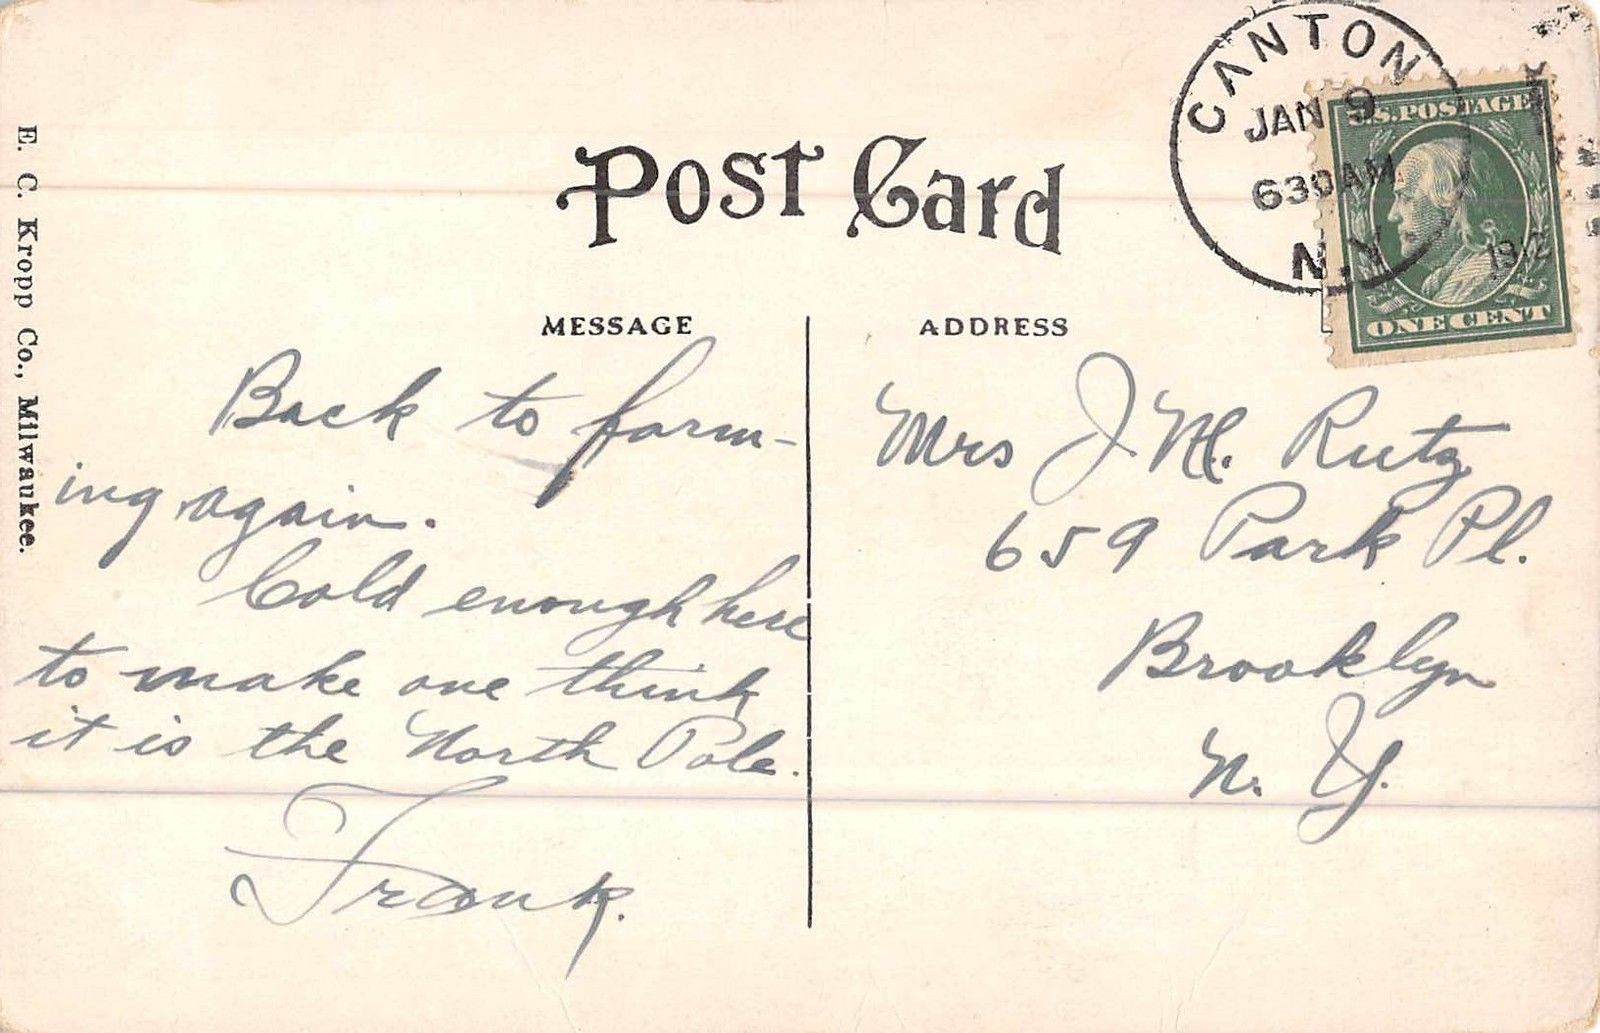 CANTON
JAN 9
630 AM
1912
N.Y.
U.S. POSTAGE
ONE CENT
Post Card
E. C. Kropp Co., Milwaukee.
MESSAGE
Back to farm-
ing again.
Cold enough here
to make one think
it is the North Pole.
Frank.
ADDRESS
Mrs J. M. Rutz
659 Park Pl.
Brooklyn
N. Y.